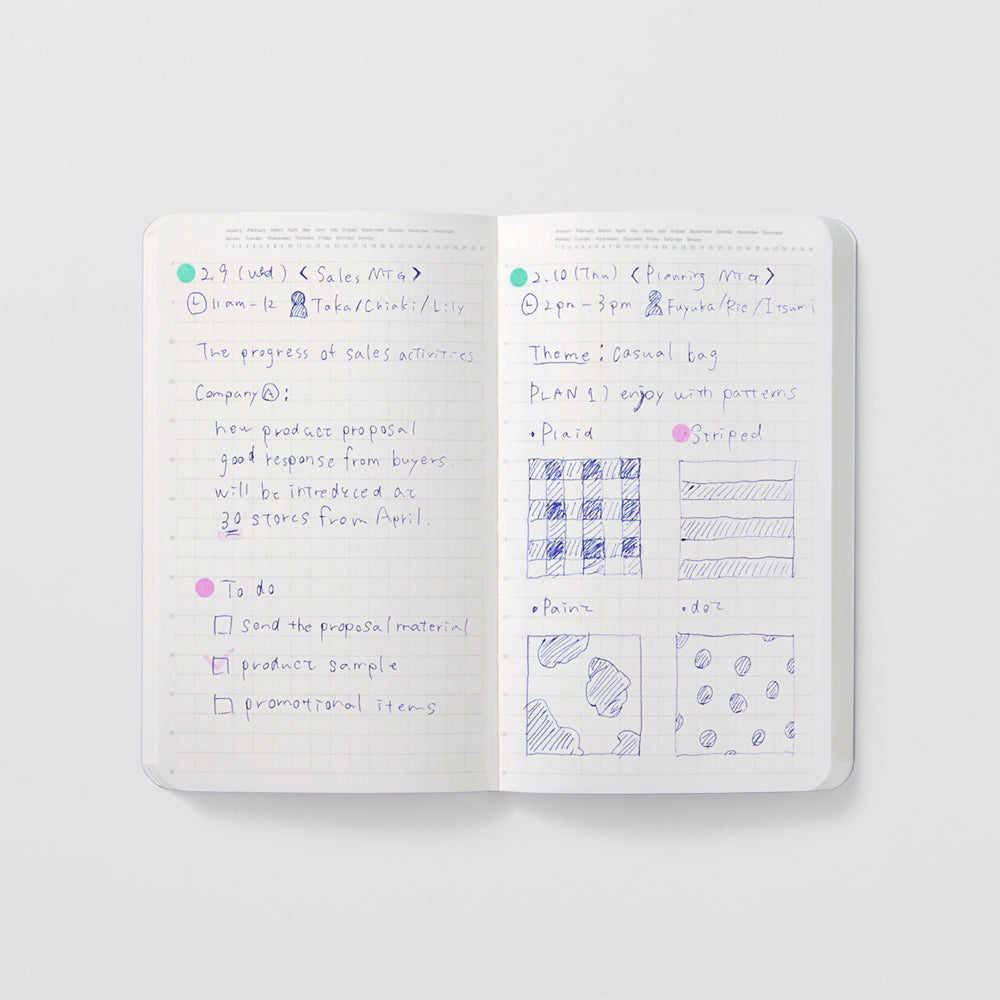 January February March April May June July August September October November December
Monday Tuesday Wednesday Thursday Friday Saturday Sunday
1 2 3 4 5 6 7 8 9 10 11 12 13 14 15 16 17 18 19 20 21 22 23 24 25 26 27 28 29 30 31
2.9 (Wed) < Sales MTG >
11am-12 Taka/Chiaki/Lily
The progress of sales activities
Company Ⓐ:
new product proposal
good response from buyers.
will be intreduced at
30 stores from April.
To do
send the proposal material
product sample
promotional items
January February March April May June July August September October November December
Monday Tuesday Wednesday Thursday Friday Saturday Sunday
1 2 3 4 5 6 7 8 9 10 11 12 13 14 15 16 17 18 19 20 21 22 23 24 25 26 27 28 29 30 31
2.10 (Thu) < Planning MTG >
2pm - 3pm Fuyuka/Rie/Itsumi
Theme : casual bag
PLAN 1) enjoy with patterns
• Plaid • Striped
• Paint • dot